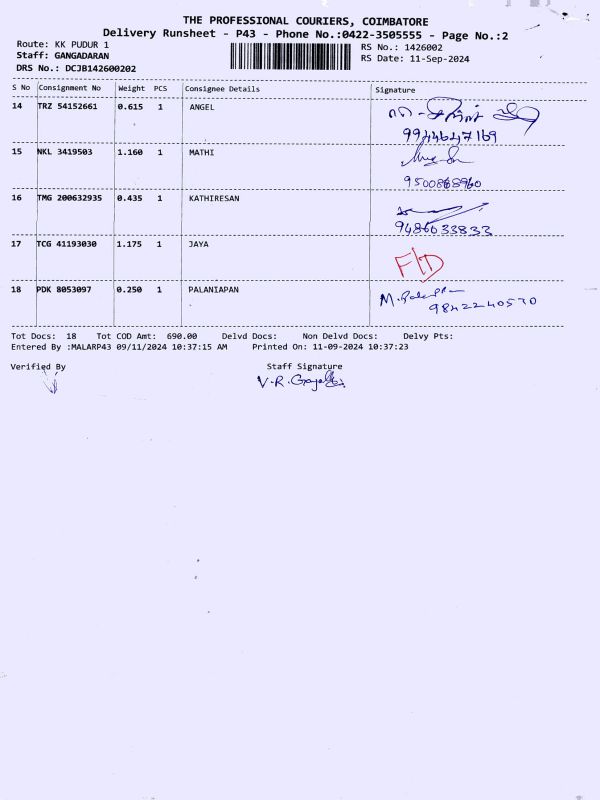 THE PROFESSIONAL COURIERS, COIMBATORE
Delivery Runsheet - P43 - Phone No.:0422-3505555 - Page No.:2
Route: KK PUDUR 1 RS No.: 1426002
Staff: GANGADARAN RS Date: 11-Sep-2024
DRS No.: DCJB142600202
S No Consignment No Weight PCS Consignee Details Signature
14 TRZ 54152661 0.615 1 ANGEL
9944647169
15 NKL 3419503 1.160 1 MATHI
9500868960
16 TMG 200632935 0.435 1 KATHIRESAN
9486033833
17 TCG 41193030 1.175 1 JAYA
F/D
18 PDK 8053097 0.250 1 PALANIAPAN
9842240570
Tot Docs: 18 Tot COD Amt: 690.00 Delvd Docs: Non Delvd Docs: Delvy Pts:
Entered By :MALARP43 09/11/2024 10:37:15 AM Printed On: 11-09-2024 10:37:23
Verified By Staff Signature
V.R.